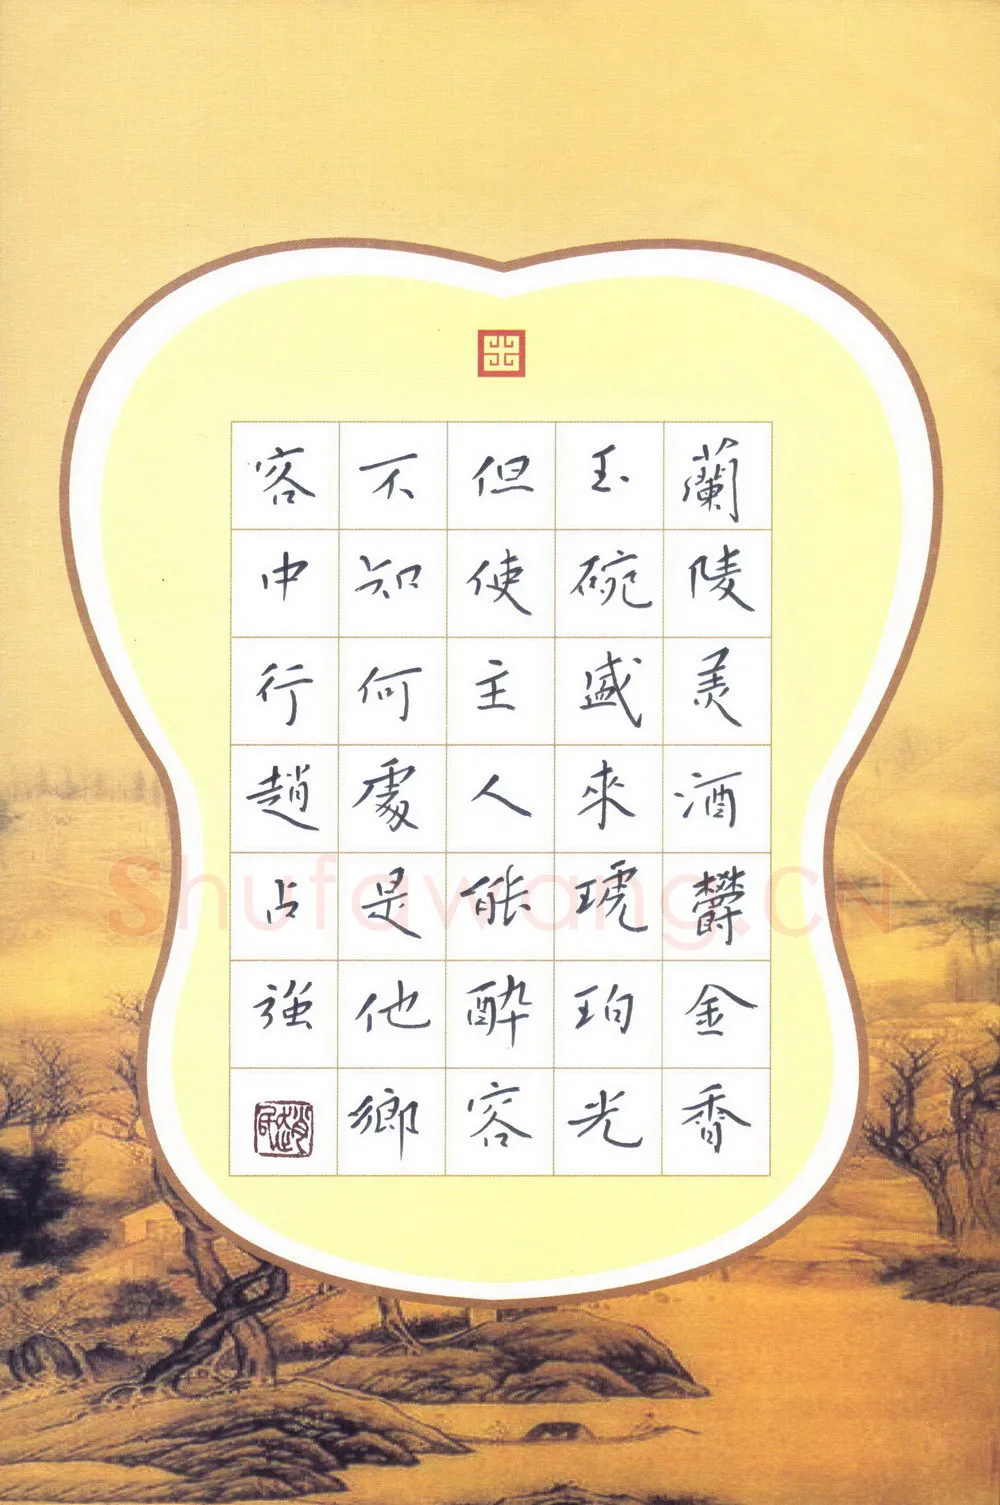 蘭陵美酒鬱金香
玉碗盛來琥珀光
但使主人能醉客
不知何處是他鄉
客中行趙占強
Shufawang.CN